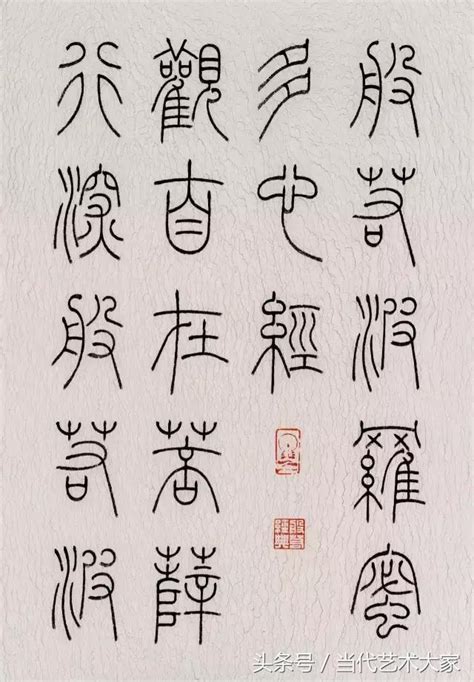 般若波羅蜜
多心經
觀自在菩薩
行深般若波
般若經典
头条号 / 当代艺术大家